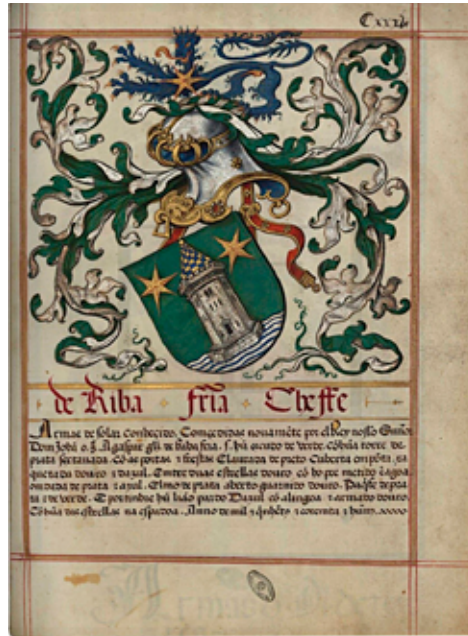 de Riba fria Cheffe
Armas de solar conhecido. Comçedidas novamẽte por elRey nosso Sñor
Dom Johã o .3. A gaspar glz de Riba fria. s. hũ escudo de verde. Cõ hũa torre de
prata Cõ as portas e frestas de preto Cuberta
douro e dazul. Emtre duas estrellas douro cõ ho pee metido e agoa
de prata e azul. Elmo de prata aberto guarnido douro. Paqfe de pra
ta e de verde. E por timbre hũ liáo pardo Dazul cõ a lingoa e armado douro.
Cõ hũa das estrellas na espadoa. Anno de mil e qnhẽtos e corenta e hũm